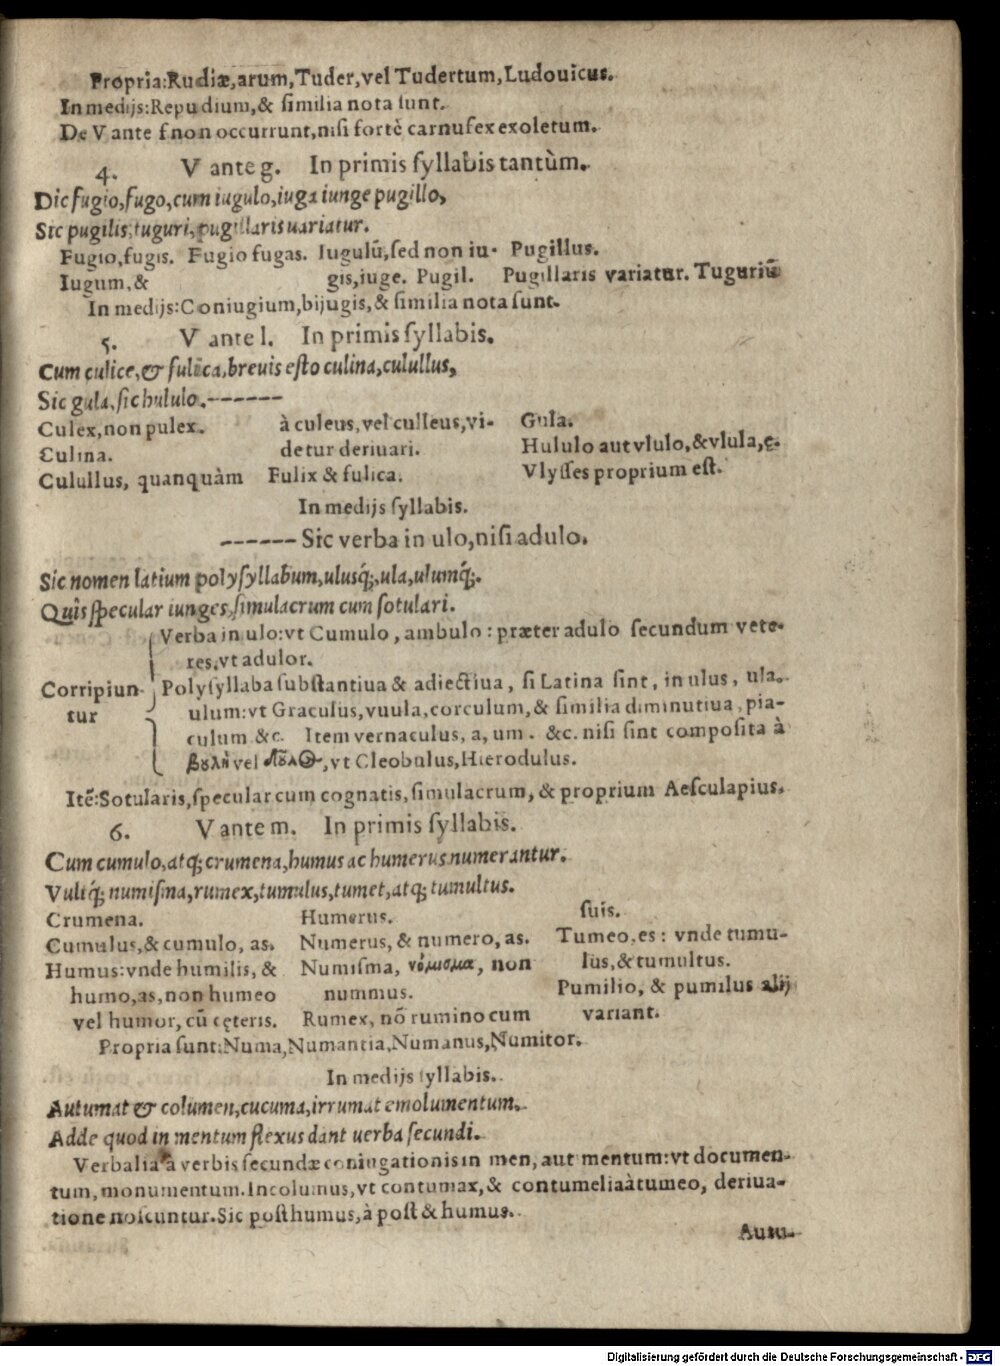 Propria: Rudiæ, arum, Tuder, vel Tudertum, Ludouicus.
In medijs: Repudium, & similia nota sunt.
De V ante f non occurrunt, nisi fortè carnufex exoletum.
4. V ante g. In primis syllabis tantùm.
Dic fugio, fugo, cum iugulo, iuga iunge pugillo,
Sic pugilis, tuguri, pugillaris uariatur.
Fugio, fugis. Fugio fugas. Iugulũ, sed non iu- Pugillus.
Iugum, & gis, iuge. Pugil. Pugillaris variatur. Tuguriũ
In medijs: Coniugium, bijugis, & similia nota sunt.
5. V ante l. In primis syllabis.
Cum culice, & fulica, breuis esto culina, culullus,
Sic gula, sic hululo. ------
Culex, non pulex.
Culina.
Culullus, quanquàm
à culeus, vel culleus, vi-
detur deriuari.
Fulix & fulica.
Gula.
Hululo aut vlulo, & vlula, ę.
Vlysses proprium est.
In medijs syllabis.
------ Sic verba in ulo, nisi adulo.
Sic nomen latium polysyllabum, ulusq́;, ula, ulumq́;.
Quîs specular iunges, simulacrum cum sotulari.
Verba in ulo: vt Cumulo, ambulo: præter adulo secundum vete-
res, vt adulor.
Corripiun-
tur
Polysyllaba substantiua & adiectiua, si Latina sint, in ulus, ula,
ulum: vt Graculus, vuula, corculum, & similia diminutiua, pia-
culum &c. Item vernaculus, a, um. &c. nisi sint composita à
βουλὴ vel δοῦλος, vt Cleobulus, Hierodulus.
Itẽ: Sotularis, specular cum cognatis, simulacrum, & proprium Aesculapius.
6. V ante m. In primis syllabis.
Cum cumulo, atq; crumena, humus ac humerus numerantur.
Vultq́; numisma, rumex, tumulus, tumet, atq; tumultus.
Crumena.
Cumulus, & cumulo, as.
Humus: vnde humilis, &
humo, as, non humeo
vel humor, cũ cęteris.
Humerus.
Numerus, & numero, as.
Numisma, νόμισμα, non
nummus.
Rumex, nõ rumino cum
suis.
Tumeo, es: vnde tumu-
lus, & tumultus.
Pumilio, & pumilus alij
variant.
Propria sunt: Numa, Numantia, Numanus, Numitor.
In medijs syllabis.
Autumat & columen, cucuma, irrumat emolumentum.
Adde quod in mentum flexus dant uerba secundi.
Verbalia à verbis secundæ coniugationis in men, aut mentum: vt documen-
tum, monumentum. Incolumus, vt contumax, & contumelia à tumeo, deriua-
tione noscuntur. Sic posthumus, à post & humus.
Autu-
Digitalisierung gefördert durch die Deutsche Forschungsgemeinschaft - DFG